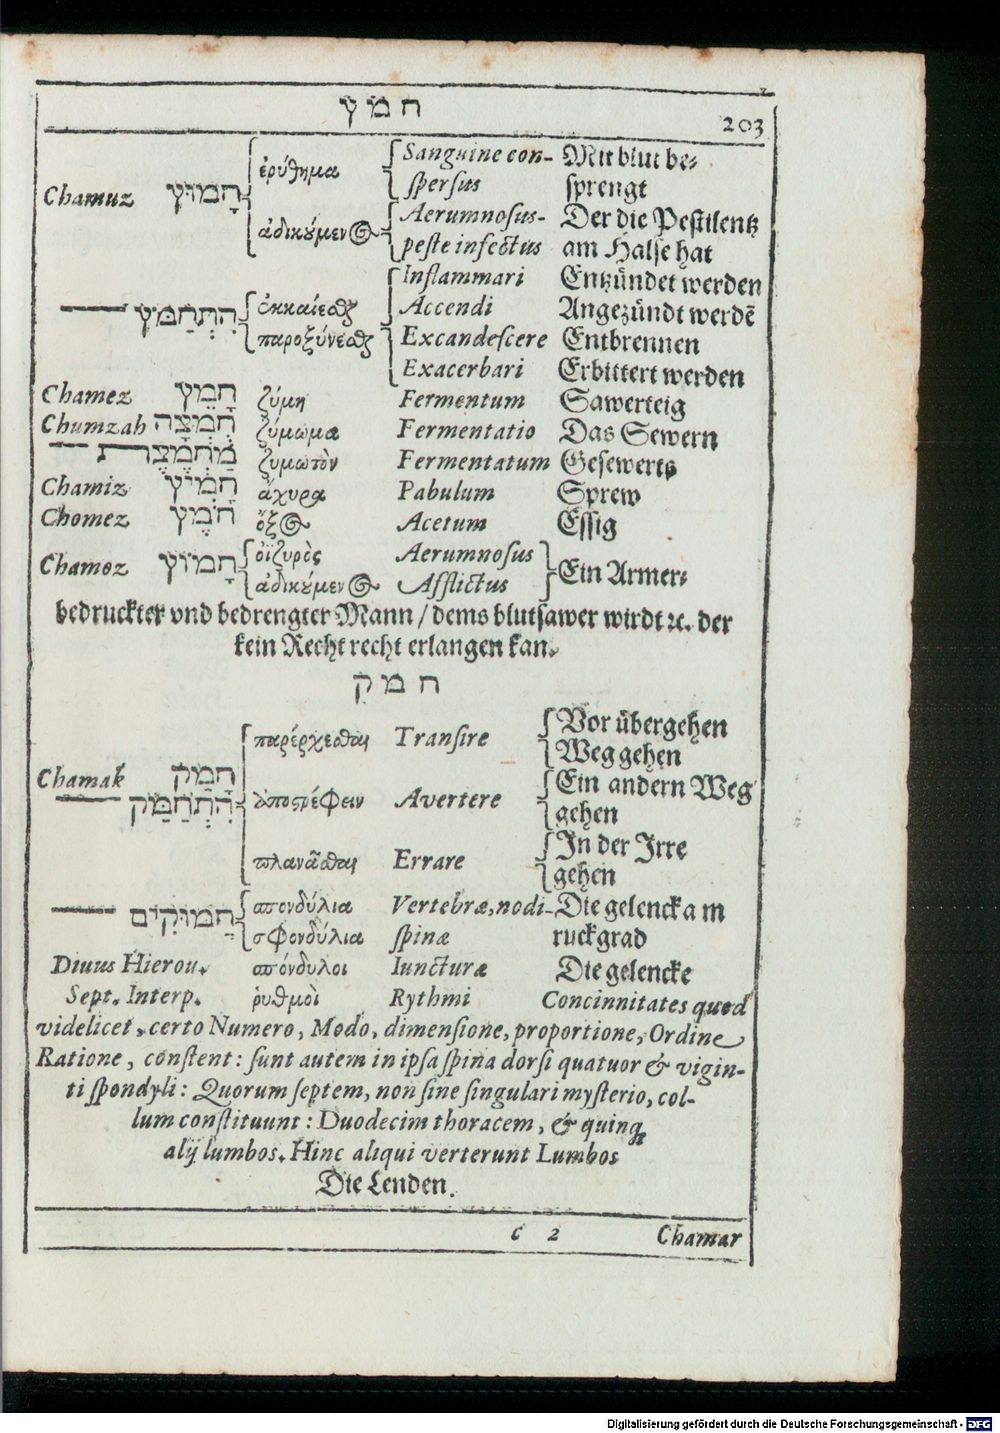 חמץ
203
Chamuz חָמוּץ ἐρύθημα Sanguine con- Mit blut be-
spersus sprengt
ἀδικούμενος Aerumnosus- Der die Pestilentz
peste infectus am Halse hat
Inflammari Entzündet werden
הִתְחַמֵּץ ἐκκαίεσθαι Accendi Angezündt werdē
παροξύνεσθαι Excandescere Entbrennen
Exacerbari Erbittert werden
Chamez חָמֵץ ζύμη Fermentum Sawerteig
Chumzah חֻמְצָה ζύμωμα Fermentatio Das Sewern
מַחְמֶצֶת ζυμωτὸν Fermentatum Gesewerts
Chamiz חָמִיץ ἄχυρα Pabulum Sprew
Chomez חֹמֶץ ὄξος Acetum Essig
Chamoz חָמוֹץ οἰζυρὸς Aerumnosus
ἀδικούμενος Afflictus Ein Armer-
bedruckter vnd bedrengter Mann / dems blutsawer wirdt ꝛc. der
kein Recht recht erlangen kan.
חמק
παρέρχεσθαι Transire Vor übergehen
Weg gehen
Chamak חָמַק Ein andern Weg
הִתְחַמַּק ἀποστρέφειν Avertere gehen
In der Irre
πλανᾶσθαι Errare gehen
חַמּוּקִים σπονδύλια Vertebræ, nodi- Die gelenck am
σφονδύλια spinæ ruckgrad
Divus Hieron. σπόνδυλοι Iuncturæ Die gelencke
Sept. Interp. ῥυθμοὶ Rythmi Concinnitates quod
videlicet, certo Numero, Modo, dimensione, proportione, Ordine
Ratione, constent: sunt autem in ipsa spina dorsi quatuor & vigin-
ti spondyli: Quorum septem, non sine singulari mysterio, col-
lum constituunt: Duodecim thoracem, & quinq
alij lumbos. Hinc aliqui verterunt Lumbos
Die Lenden.
c 2 Chamar
Digitalisierung gefördert durch die Deutsche Forschungsgemeinschaft - DFG